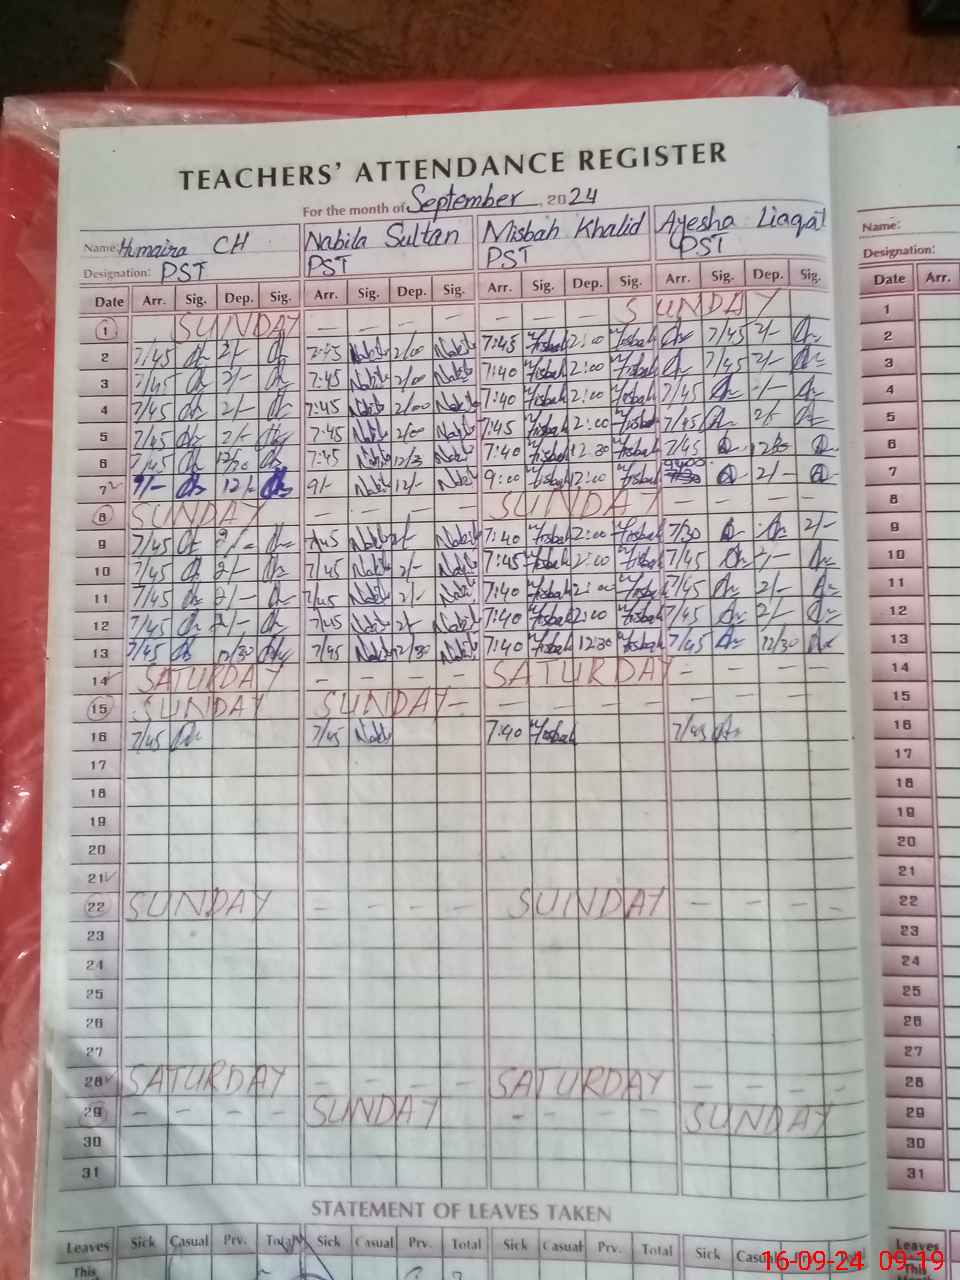 TEACHERS' ATTENDANCE REGISTER
For the month of September, 2024
Name: Humaira CH Nabila Sultan Misbah Khalid Ayesha Liaqat
Designation: PST PST PST PST
Date Arr. Sig. Dep. Sig. Arr. Sig. Dep. Sig. Arr. Sig. Dep. Sig. Arr. Sig. Dep. Sig.
1 SUNDAY - - - - SUNDAY
2 7/45 2/- 7:45 Nabila 2/00 Nabila 7:45 Misbah 2:00 Misbah 7/45 2/-
3 7/45 2/- 7:45 Nabila 2/00 Nabila 7:40 Misbah 2:00 Misbah 7/45 2/-
4 7/45 2/- 7:45 Nabila 2/00 Nabila 7:40 Misbah 2:00 Misbah 7/45
5 7/45 2/- 7:45 Nabila 2/00 Nabila 7:45 Misbah 2:00 Misbah 7/45
6 7/45 12/30 7:45 Nabila Nabila 7:40 Misbah 12:30 Misbah 7/45 12/30
7 9/- 12/- 9/- Nabila 12/- Nabila 9:00 Misbah 12:00 Misbah 2/-
8 SUNDAY - - - - SUNDAY - - - -
9 7/45 2/- 7/45 Nabila 2/- Nabila 7:40 Misbah 2:00 Misbah 7/30 2/-
10 7/45 2/- 7/45 Nabila 2/- Nabila 7:45 Misbah 2:00 Misbah 7/45
11 7/45 2/- 7/45 Nabila 2/- Nabila 7:40 Misbah 2:00 Misbah 7/45 2/-
12 7/45 2/- 7/45 Nabila 2/- Nabila 7:40 Misbah 2:00 Misbah 7/45 2/-
13 7/45 12/30 7/45 Nabila 12/30 Nabila 7:40 Misbah 12:30 Misbah 7/45 12/30
14 SATURDAY - - - - SATURDAY - - - -
15 SUNDAY SUNDAY - - - - -
16 7/45 7/45 Nabila 7:40 Misbah 7/45
17
18
19
20
21
22 SUNDAY - - - - SUNDAY - - - -
23
24
25
26
27
28 SATURDAY - - - - SATURDAY - - - -
29 - - - - SUNDAY - - - - SUNDAY
30
31
STATEMENT OF LEAVES TAKEN
Leaves Sick Casual Prv. Total Sick Casual Prv. Total Sick Casual Prv. Total Sick Casual
This
Name:
Designation:
Date Arr.
1
2
3
4
5
6
7
8
9
10
11
12
13
14
15
16
17
18
19
20
21
22
23
24
25
26
27
28
29
30
31
Leaves
This
16-09-24 09:19